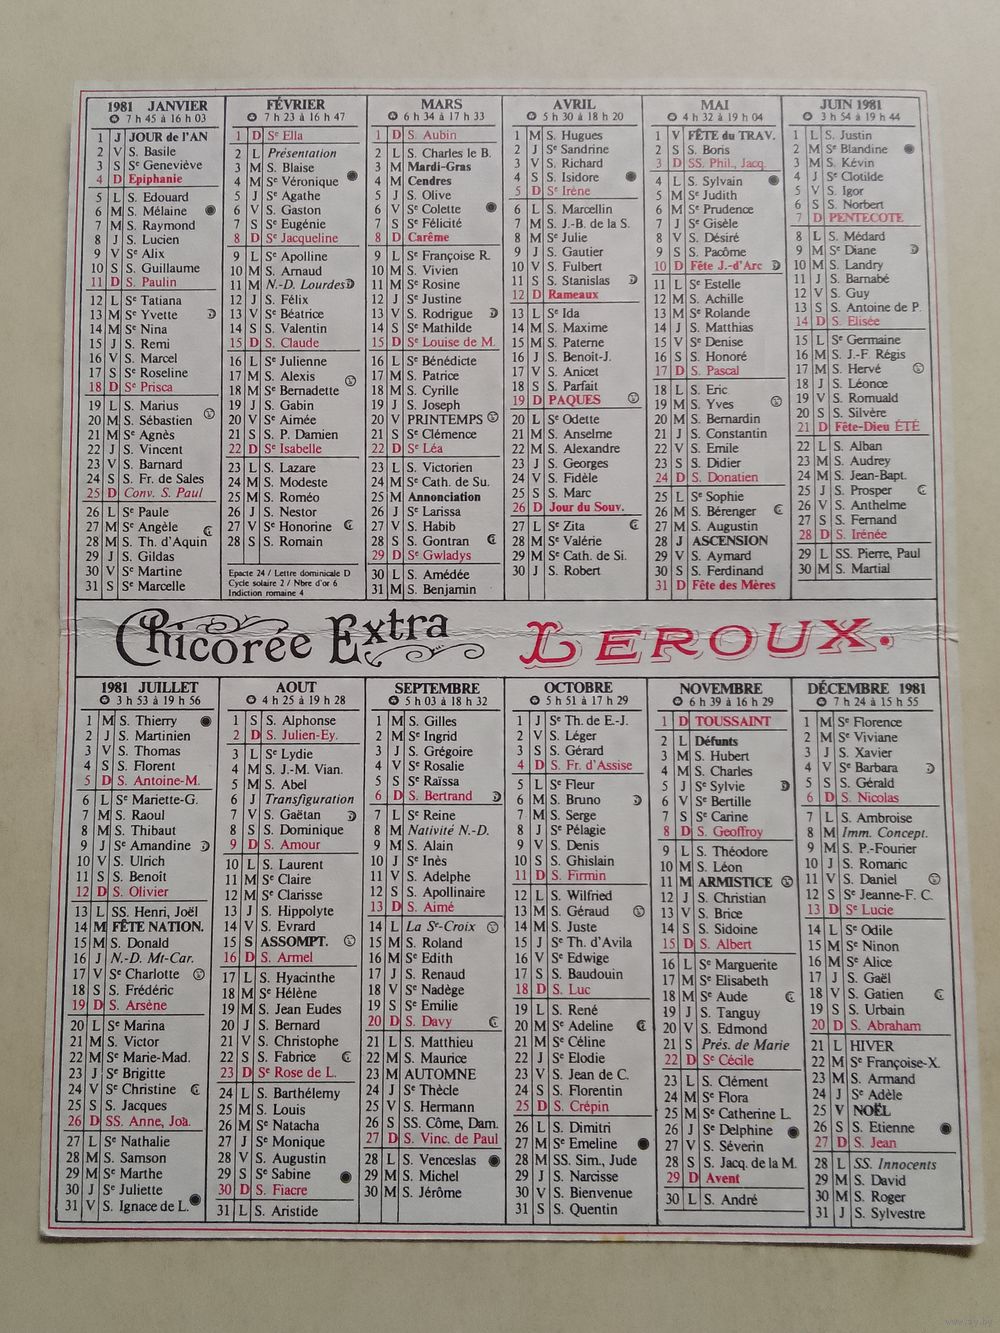 1981 JANVIER
7 h 45 à 16 h 03
1 J JOUR de l'AN
2 V S. Basile
3 S Se Geneviève
4 D Epiphanie
5 L S. Edouard
6 M S. Mélaine
7 M S. Raymond
8 J S. Lucien
9 V Se Alix
10 S S. Guillaume
11 D S. Paulin
12 L Se Tatiana
13 M Se Yvette
14 M Se Nina
15 J S. Remi
16 V S. Marcel
17 S Se Roseline
18 D Se Prisca
19 L S. Marius
20 M S. Sébastien
21 M Se Agnès
22 J S. Vincent
23 V S. Barnard
24 S S. Fr. de Sales
25 D Conv. S. Paul
26 L Se Paule
27 M Se Angèle
28 M S. Th. d'Aquin
29 J S. Gildas
30 V Se Martine
31 S Se Marcelle
FÉVRIER
7 h 23 à 16 h 47
1 D Se Ella
2 L Présentation
3 M S. Blaise
4 M Se Véronique
5 J Se Agathe
6 V S. Gaston
7 S Se Eugénie
8 D Se Jacqueline
9 L Se Apolline
10 M S. Arnaud
11 M N.-D. Lourdes
12 J S. Félix
13 V Se Béatrice
14 S S. Valentin
15 D S. Claude
16 L Se Julienne
17 M S. Alexis
18 M Se Bernadette
19 J S. Gabin
20 V Se Aimée
21 S S. P. Damien
22 D Se Isabelle
23 L S. Lazare
24 M S. Modeste
25 M S. Roméo
26 J S. Nestor
27 V Se Honorine
28 S S. Romain
Epacte 24 / Lettre dominicale D
Cycle solaire 2 / Nbre d'or 6
Indiction romaine 4
MARS
6 h 34 à 17 h 33
1 D S. Aubin
2 L S. Charles le B.
3 M Mardi-Gras
4 M Cendres
5 J S. Olive
6 V Se Colette
7 S Se Félicité
8 D Carême
9 L Se Françoise R.
10 M S. Vivien
11 M Se Rosine
12 J Se Justine
13 V S. Rodrigue
14 S Se Mathilde
15 D Se Louise de M.
16 L Se Bénédicte
17 M S. Patrice
18 M S. Cyrille
19 J S. Joseph
20 V PRINTEMPS
21 S Se Clémence
22 D Se Léa
23 L S. Victorien
24 M Se Cath. de Su.
25 M Annonciation
26 J Se Larissa
27 V S. Habib
28 S S. Gontran
29 D Se Gwladys
30 L S. Amédée
31 M S. Benjamin
AVRIL
5 h 30 à 18 h 20
1 M S. Hugues
2 J Se Sandrine
3 V S. Richard
4 S S. Isidore
5 D Se Irène
6 L S. Marcellin
7 M S. J.-B. de la S.
8 M Se Julie
9 J S. Gautier
10 V S. Fulbert
11 S S. Stanislas
12 D Rameaux
13 L Se Ida
14 M S. Maxime
15 M S. Paterne
16 J S. Benoit-J.
17 V S. Anicet
18 S S. Parfait
19 D PAQUES
20 L Se Odette
21 M S. Anselme
22 M S. Alexandre
23 J S. Georges
24 V S. Fidèle
25 S S. Marc
26 D Jour du Souv.
27 L Se Zita
28 M Se Valérie
29 M Se Cath. de Si.
30 J S. Robert
MAI
4 h 32 à 19 h 04
1 V FÊTE du TRAV.
2 S S. Boris
3 D SS. Phil., Jacq.
4 L S. Sylvain
5 M Se Judith
6 M Se Prudence
7 J Se Gisèle
8 V S. Désiré
9 S S. Pacôme
10 D Fête J.-d'Arc
11 L Se Estelle
12 M S. Achille
13 M Se Rolande
14 J S. Matthias
15 V Se Denise
16 S S. Honoré
17 D S. Pascal
18 L S. Eric
19 M S. Yves
20 M S. Bernardin
21 J S. Constantin
22 V S. Emile
23 S S. Didier
24 D S. Donatien
25 L Se Sophie
26 M S. Bérenger
27 M S. Augustin
28 J ASCENSION
29 V S. Aymard
30 S S. Ferdinand
31 D Fête des Mères
JUIN 1981
3 h 54 à 19 h 44
1 L S. Justin
2 M Se Blandine
3 M S. Kévin
4 J Se Clotilde
5 V S. Igor
6 S S. Norbert
7 D PENTECOTE
8 L S. Médard
9 M Se Diane
10 M S. Landry
11 J S. Barnabé
12 V S. Guy
13 S S. Antoine de P.
14 D S. Elisée
15 L Se Germaine
16 M S. J.-F. Régis
17 M S. Hervé
18 J S. Léonce
19 V S. Romuald
20 S S. Silvère
21 D Fête-Dieu ÉTÉ
22 L S. Alban
23 M S. Audrey
24 M S. Jean-Bapt.
25 J S. Prosper
26 V S. Anthelme
27 S S. Fernand
28 D S. Irénée
29 L SS. Pierre, Paul
30 M S. Martial
Chicorée Extra LEROUX.
1981 JUILLET
3 h 53 à 19 h 56
1 M S. Thierry
2 J S. Martinien
3 V S. Thomas
4 S S. Florent
5 D S. Antoine-M.
6 L Se Mariette-G.
7 M S. Raoul
8 M S. Thibaut
9 J Se Amandine
10 V S. Ulrich
11 S S. Benoît
12 D S. Olivier
13 L SS. Henri, Joël
14 M FÊTE NATION.
15 M S. Donald
16 J N.-D. Mt-Car.
17 V Se Charlotte
18 S S. Frédéric
19 D S. Arsène
20 L Se Marina
21 M S. Victor
22 M Se Marie-Mad.
23 J Se Brigitte
24 V Se Christine
25 S S. Jacques
26 D SS. Anne, Joa.
27 L Se Nathalie
28 M S. Samson
29 M Se Marthe
30 J Se Juliette
31 V S. Ignace de L.
AOUT
4 h 25 à 19 h 28
1 S S. Alphonse
2 D S. Julien-Ey.
3 L Se Lydie
4 M S. J.-M. Vian.
5 M S. Abel
6 J Transfiguration
7 V S. Gaëtan
8 S S. Dominique
9 D S. Amour
10 L S. Laurent
11 M Se Claire
12 M Se Clarisse
13 J S. Hippolyte
14 V S. Evrard
15 S ASSOMPT.
16 D S. Armel
17 L S. Hyacinthe
18 M Se Hélène
19 M S. Jean Eudes
20 J S. Bernard
21 V S. Christophe
22 S S. Fabrice
23 D Se Rose de L.
24 L S. Barthélemy
25 M S. Louis
26 M Se Natacha
27 J Se Monique
28 V S. Augustin
29 S Se Sabine
30 D S. Fiacre
31 L S. Aristide
SEPTEMBRE
5 h 03 à 18 h 32
1 M S. Gilles
2 M Se Ingrid
3 J S. Grégoire
4 V Se Rosalie
5 S Se Raïssa
6 D S. Bertrand
7 L Se Reine
8 M Nativité N.-D.
9 M S. Alain
10 J Se Inès
11 V S. Adelphe
12 S S. Apollinaire
13 D S. Aimé
14 L La Se-Croix
15 M S. Roland
16 M Se Edith
17 J S. Renaud
18 V Se Nadège
19 S Se Emilie
20 D S. Davy
21 L S. Matthieu
22 M S. Maurice
23 M AUTOMNE
24 J Se Thècle
25 V S. Hermann
26 S SS. Côme, Dam.
27 D S. Vinc. de Paul
28 L S. Venceslas
29 M S. Michel
30 M S. Jérôme
OCTOBRE
5 h 51 à 17 h 29
1 J Se Th. de E.-J.
2 V S. Léger
3 S S. Gérard
4 D S. Fr. d'Assise
5 L Se Fleur
6 M S. Bruno
7 M S. Serge
8 J Se Pélagie
9 V S. Denis
10 S S. Ghislain
11 D S. Firmin
12 L S. Wilfried
13 M S. Géraud
14 M S. Juste
15 J Se Th. d'Avila
16 V Se Edwige
17 S S. Baudouin
18 D S. Luc
19 L S. René
20 M Se Adeline
21 M Se Céline
22 J Se Elodie
23 V S. Jean de C.
24 S S. Florentin
25 D S. Crépin
26 L S. Dimitri
27 M Se Emeline
28 M SS. Sim., Jude
29 J S. Narcisse
30 V S. Bienvenue
31 S S. Quentin
NOVEMBRE
6 h 39 à 16 h 29
1 D TOUSSAINT
2 L Défunts
3 M S. Hubert
4 M S. Charles
5 J Se Sylvie
6 V Se Bertille
7 S Se Carine
8 D S. Geoffroy
9 L S. Théodore
10 M S. Léon
11 M ARMISTICE
12 J S. Christian
13 V S. Brice
14 S S. Sidoine
15 D S. Albert
16 L Se Marguerite
17 M Se Elisabeth
18 M Se Aude
19 J S. Tanguy
20 V S. Edmond
21 S Prés. de Marie
22 D Se Cécile
23 L S. Clément
24 M Se Flora
25 M Se Catherine L.
26 J Se Delphine
27 V S. Séverin
28 S S. Jacq. de la M.
29 D Avent
30 L S. André
DÉCEMBRE 1981
7 h 24 à 15 h 55
1 M Se Florence
2 M Se Viviane
3 J S. Xavier
4 V Se Barbara
5 S S. Gérald
6 D S. Nicolas
7 L S. Ambroise
8 M Imm. Concept.
9 M S. P.-Fourier
10 J S. Romaric
11 V S. Daniel
12 S Se Jeanne-F. C.
13 D Se Lucie
14 L Se Odile
15 M Se Ninon
16 M Se Alice
17 J S. Gaël
18 V S. Gatien
19 S S. Urbain
20 D S. Abraham
21 L HIVER
22 M Se Françoise-X.
23 M S. Armand
24 J Se Adèle
25 V NOËL
26 S S. Etienne
27 D S. Jean
28 L SS. Innocents
29 M S. David
30 M S. Roger
31 J S. Sylvestre